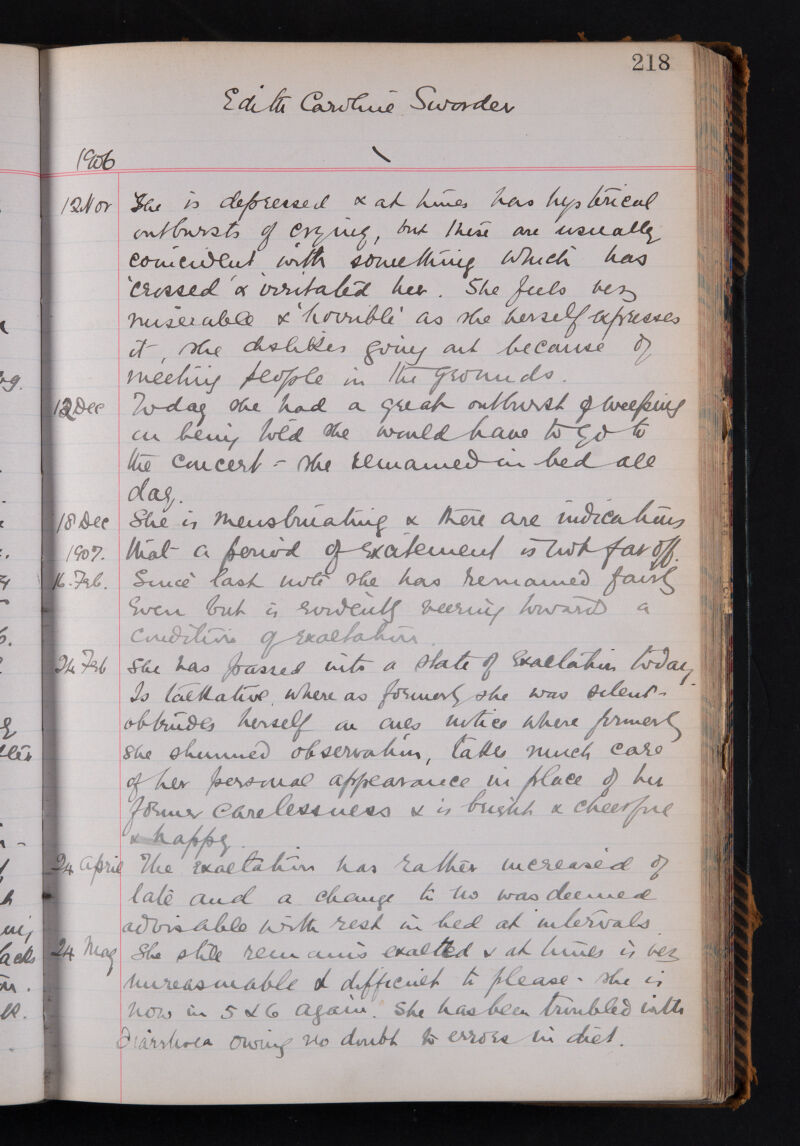 218
Edith Caroline Sworder
1906
12 Nov She is depressed & at times has hysterical
outbursts of crying, but these are usually
coincident with something which has
'crossed' & irritated her. She feels very
miserable & 'horrible' as she herself expresses
it, she dislikes going out because of
meeting people in the grounds.
12 Dec Today she had a great outburst of weeping
on being told she would have to go to
the concert - she remained in bed all
day.
18 Dec She is menstruating & there are indications
1907. that a period of excitement is not far off.
16. Feb. Since last note she has remained fairly
even but is evidently veering towards a
condition of exaltation.
24 Feb She has passed into a state of exaltation today.
Is talkative where as formerly she was silent -
obtrudes herself on ones notice where formerly
she shunned observation, takes much care
of her personal appearance in place of her
former carelessness & is bright & cheerful
& happy.
24 April The exaltation has rather increased of
late and a change to was deemed
advisable with rest in bed at intervals.
24 May She still remains exalted & at times is very
unreasonable & difficult to please - she is
now in 5 & 6 again. She has been troubled with
Diarrhoea owing no doubt to errors in diet.